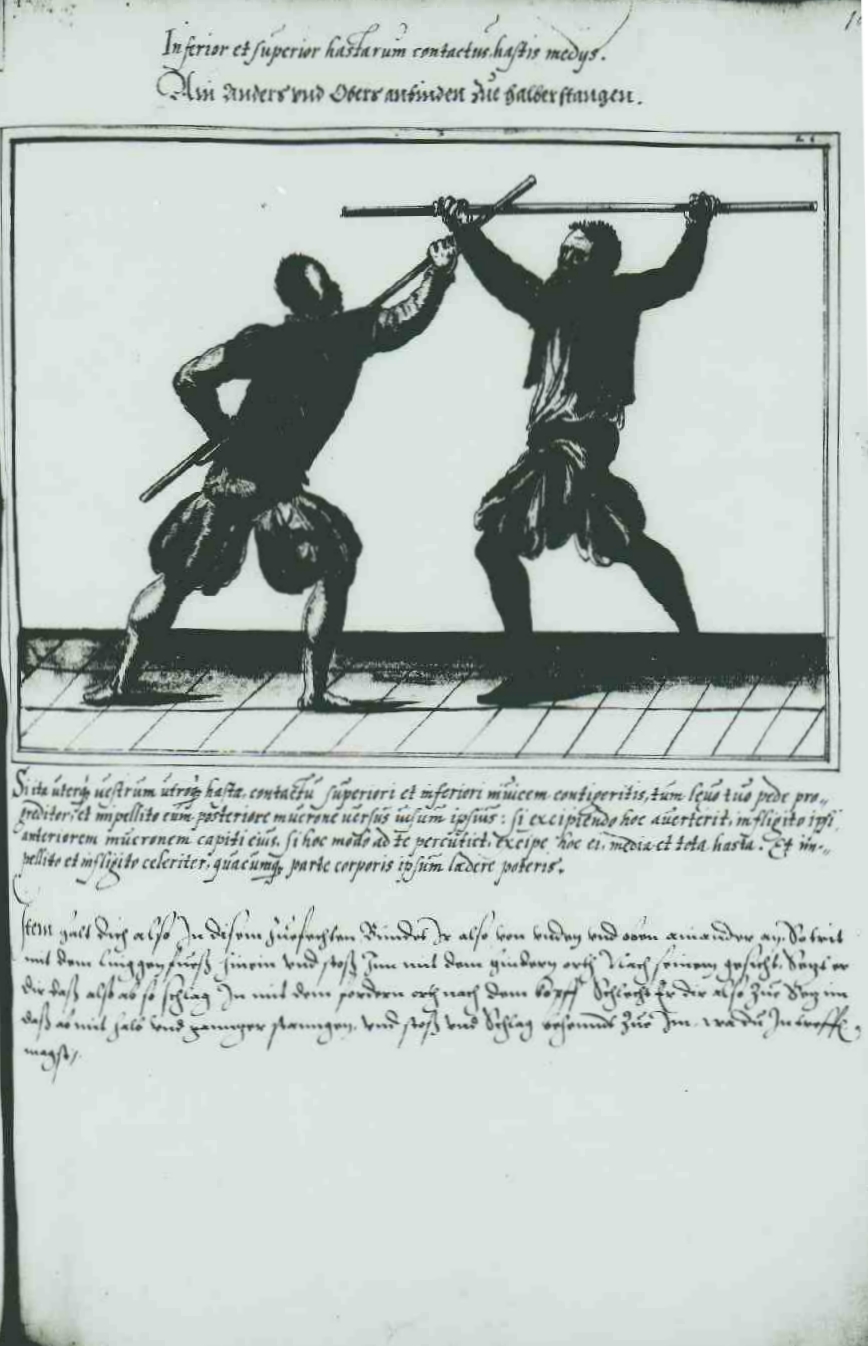 Inferior et superior hastarum contactus, hastis medijs.
Ain Anders vnd Obers anbinden Zue halber stangen.
Si ita uterq; uestrum utroq; hastæ contactu superiori et inferiori inuicem contigeritis, tum leuo tuo pede pro„
greditor, et impellito eum posteriore mucrone uersus uisum ipsius: si excipiendo hoc auerterit, infligito ipsi
anteriorem mucronem capiti eius, si hoc modo ad te percutiet, excipe hoc ei, media et tota hasta. Et im„
pellito et infligito celeriter, quacumq; parte corporis ipsum lædere poteris.
Item halt dich also In disem Zuefechten Bindet Ir also von vnden vnd oben ainander an, So trit
mit dem linggen fuesß hinein vnd stosß Inn mit dem hindern orth Nach seinem gesicht, Setzt er
dir dasß also ab so schlag In mit dem fordern orth nach dem kopff Schlecht Er dir also Zue Setz im
dasß ab mit halb vnd gannger stanngen, vnd stosß vnd Schlag behennde Zue Im, wa du In treffen
magst,